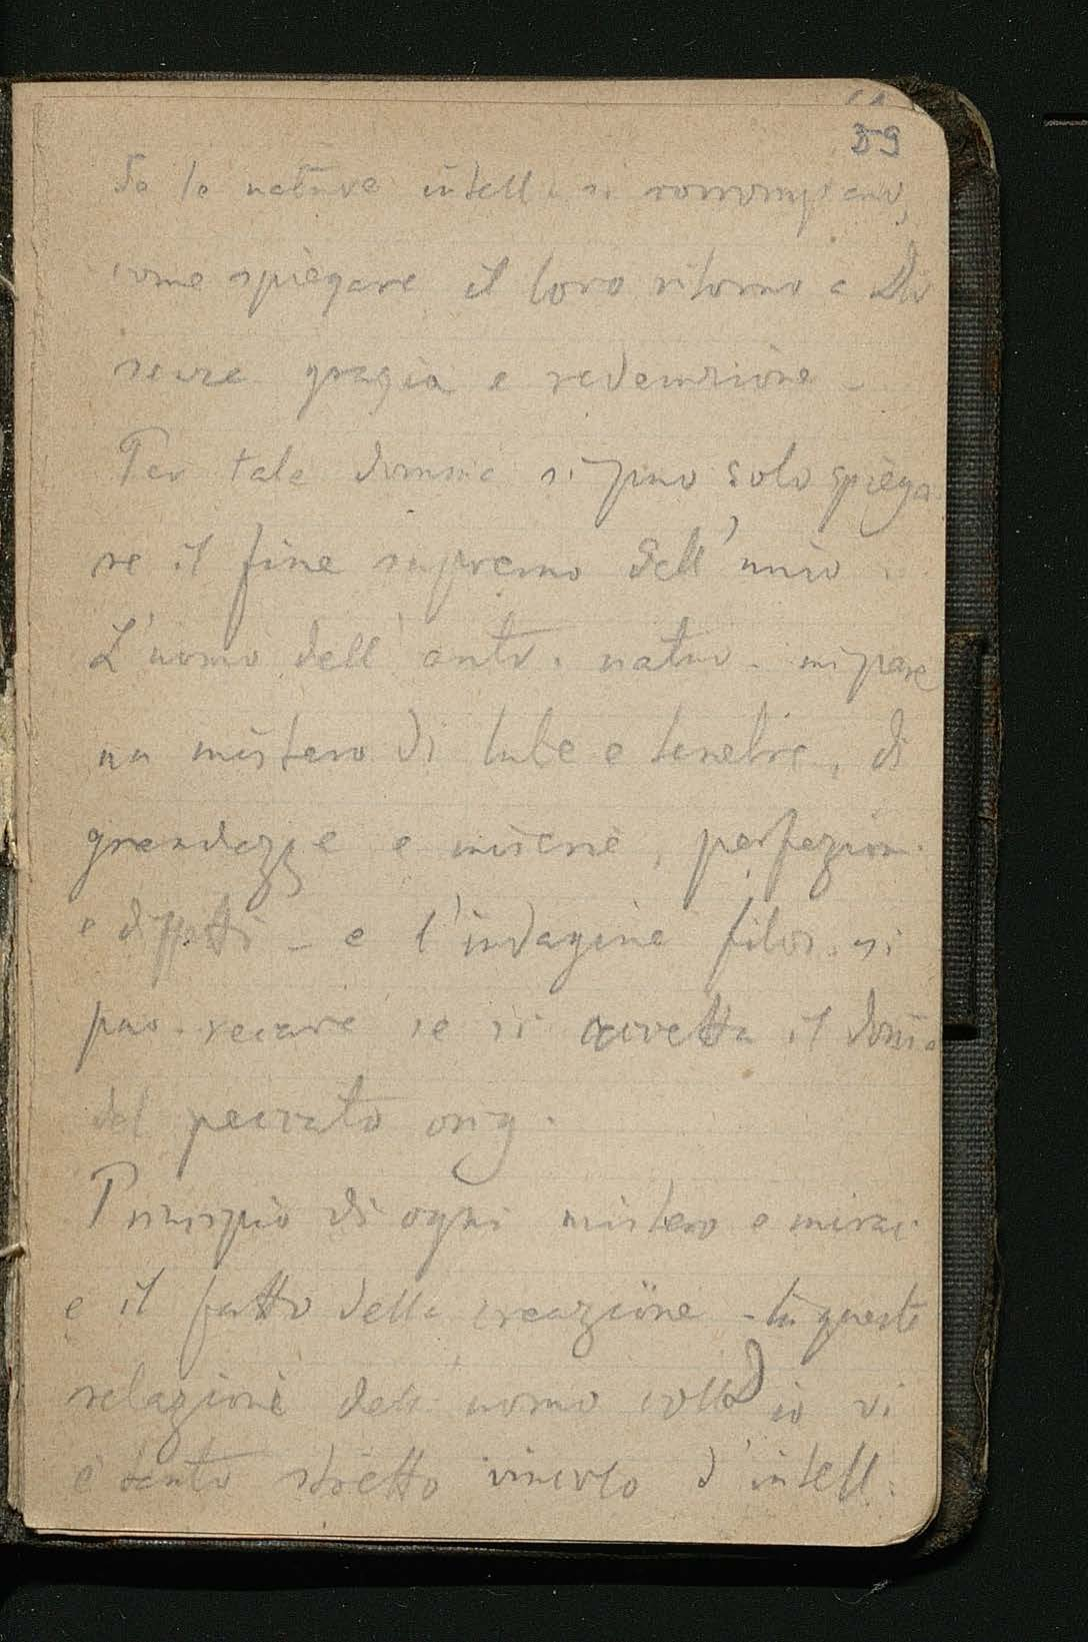 59
Se le nature intell. si corrompeano,
come spiegare il loro ritorno a Dio
senza grazia e redenzione -
Per tale domma si può solo spiega
re il fine supremo dell'unio
L'uomo dell' ant. natur. mi pare
un mistero di luce e tenebre, di
grandezze e miserie, perfezioni
e difetti - e l'indagine filos. si
può recare se si accetta il domma
del peccato orig.
Principio di ogni mistero e mirac.
e il fatto della creazione - In queste
relazioni dell' uomo colla Dio vi
è tanto stretto vincolo d'intell.